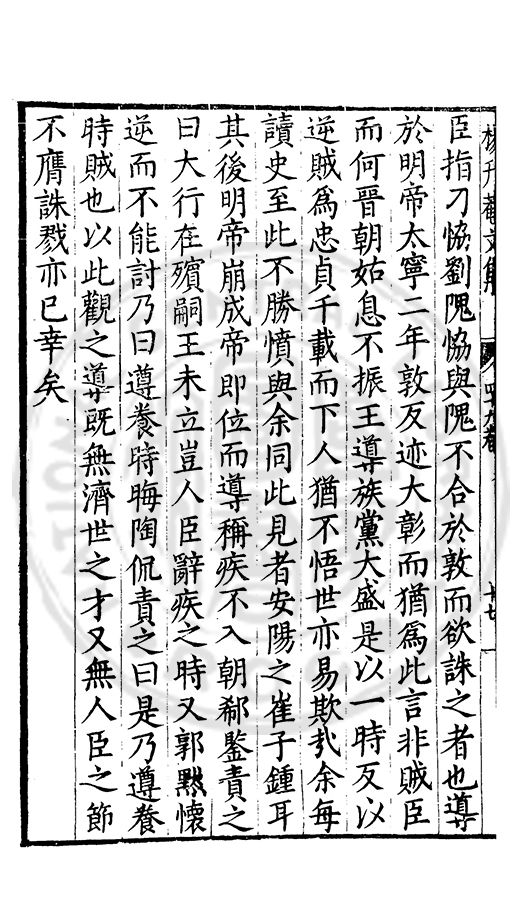 楊升菴文集 四十九卷 十七
臣指刁恊劉隗恊與隗不合於敦而欲誅之者也導
於明帝太寧二年敦反迹大彰而猶爲此言非賊臣
而何晉朝姑息不振王導族黨大盛是以一時反以
逆賊爲忠貞千載而下人猶不悟世亦易欺㢤余每
讀史至此不勝憤與余同此見者安陽之崔子鍾耳
其後明帝崩成帝即位而導稱疾不入朝郗鑒責之
曰大行在殯嗣王未立豈人臣辭疾之時又郭黙懷
逆而不能討乃曰遵養時晦陶侃責之曰是乃遵養
時賊也以此觀之導既無濟世之才又無人臣之節
不膺誅戮亦已幸矣